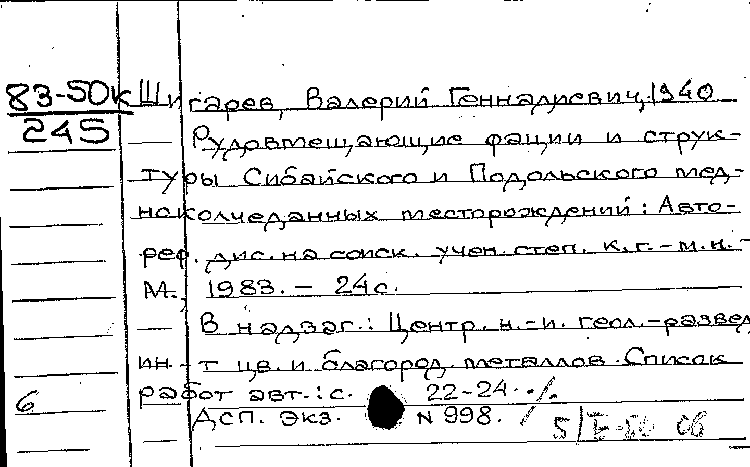 83-50к
245
Шигарев, Валерий Геннадиевич, 1940
Рудовмещающие фации и струк-
туры Сибайского и Подольского мед-
ноколчеданных месторождений: Авто-
реф. дис. на соиск. учен. степ. к.г.-м.н. -
М., 1983. - 24 с.
В надзаг.: Центр. н.-и. геол.-развед.
ин-т цв. и благород. металлов. Список
работ авт.: с. 22-24.
6
ДСП. Экз. N 998.